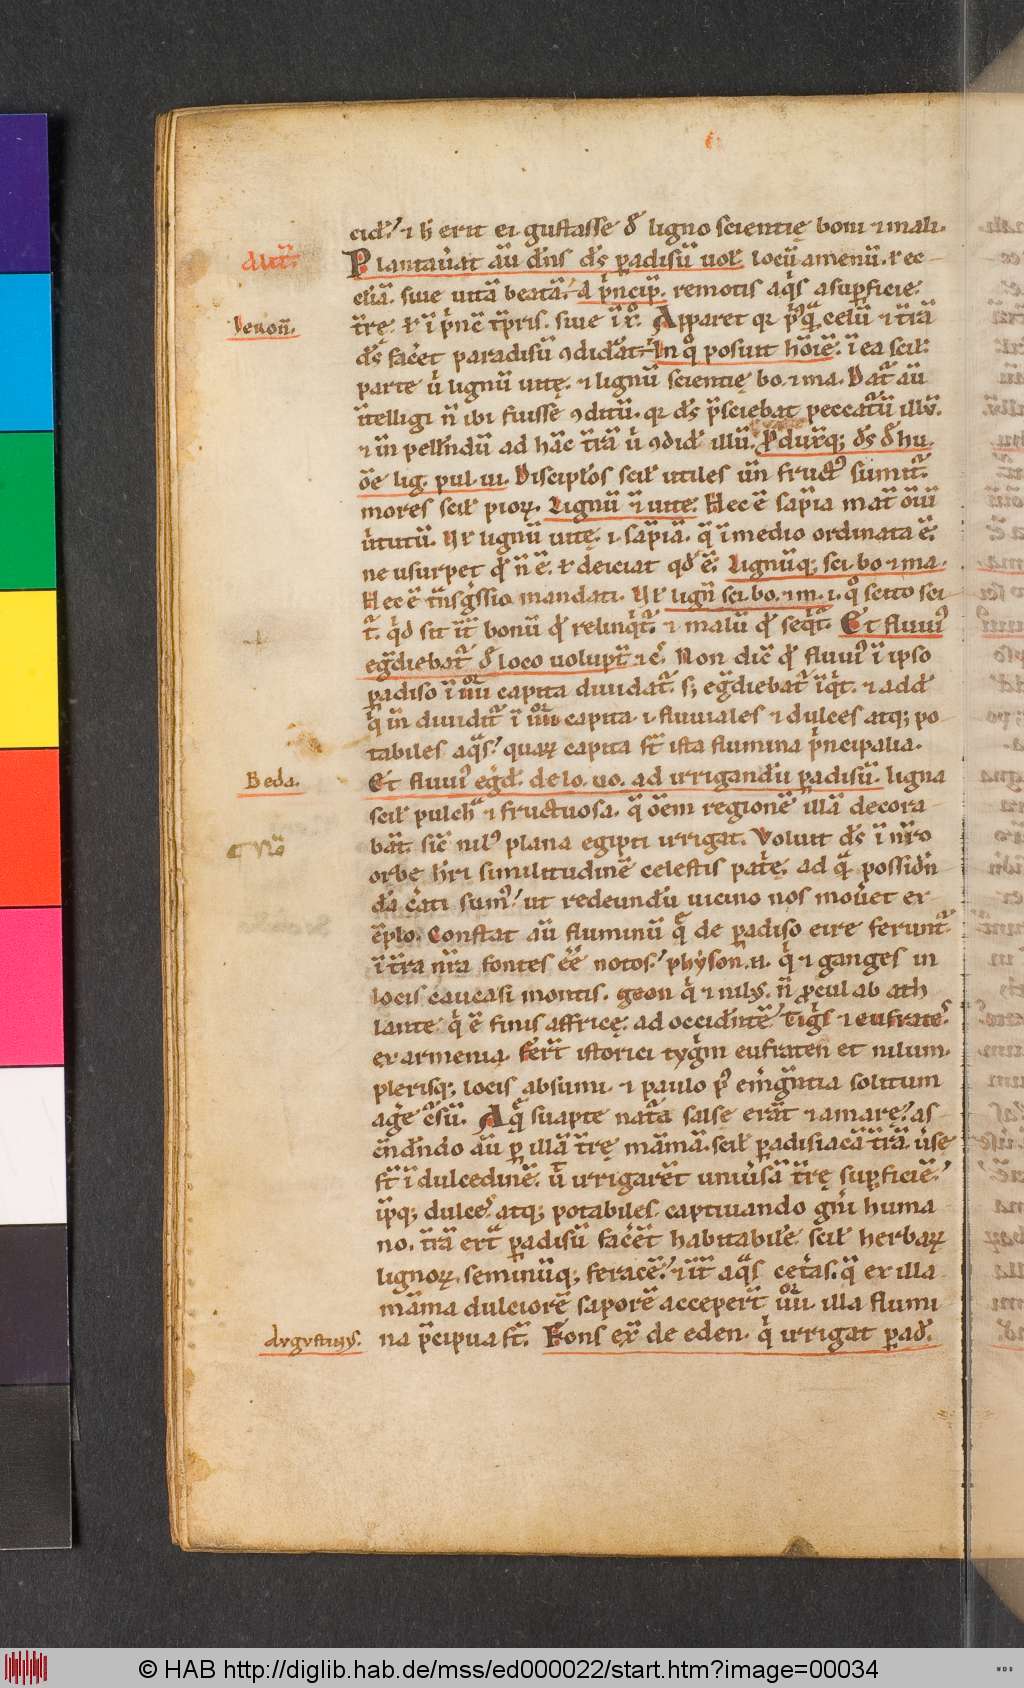 cid᷒. ⁊ h̄ erit ei gustasse đ ligno scientię boni ⁊ mali.
Aut̄.
Plantaůat aū dn̄s ds̄ padisū uol̄ locū amenū. ł ec
clīa. siue uitā beatā. A pͥncip̄. remotis aqͥs a supficie
Ieron̄.
tr̄ę. ł ī pͥnc̄ tp̄ris. siue ī Apparet qr celū ⁊ tr̄ā
ds̄ fac̓et paradisū ꝯdid̓at. In qͦ posuit hōīē. ī ea scil̄
parte ů lignū uitę. ⁊ lignū scientię bo. ⁊ ma. Dat᷒ aū
īntelligi n̄ ibi fuisse ꝯditū. qr ds̄ p̄sciebat peccat᷒ū illū.
⁊ in̄ pellendū ad hāc tr̄ā ů ꝯdid̓ illū. Produx̄q; ds̄ đ hu
ōe lig. pul. ui. Discipl̓os scil̄ utiles un̄ fruct᷒ sumit᷒.
mores scil̄ pioꝝ. Lignū ⁊̄ uite. Hec ē sap̄ia mat̄ oīū
ůtutū. Ył lignū uitę. i. sap̄ia. q̄ ī medio ordinata ē.
ne usurpet qđ n̄ ē. ł deiciat qđ ē. Lignūq; sci. bo ⁊ ma.
Hec ē tn̄sgͥssio mandati. Ył lign̄ sci. bo. ⁊ m. i. qͦ scito sci
t᷒. qͥd sit īt̄ bonū qđ relinqͥt᷒. ⁊ malū qđ seqͥt᷒. Et fluui᷒
egᷓdiebat᷒ đ loco uolupt̄ ⁊ c̄. Non dic̄ qđ fluui᷒ ī ipso
padiso ī iiii capita diuidat᷒. s; egᷓdiebat᷒ īqͥt. ⁊ add̓
qͥ in̄ diuidit᷒ ī iiii capita. i. fluuiales ⁊ dulces atq; po
tabiles aqᷓs. quaꝝ capita st̄ ista flumina pͥncipalia.
Beda.
Et fluui᷒ egᷓd̓. de lo. uo. ad irrigandū padisū. ligna
scil̄ pulchᷓ ⁊ fructuosa. q̄ ōem regionē illā decora
bāt. sic̄ nil᷒ plana egipti irrigat. Voluit ds̄ ī nr̄o
orbe hr̄i similitudinē celestis pat᷒ę. ad qᷓ possid̓n
da c̓ati sum᷒. ut redeundū uicino nos mou̓et ex
ēplo. Constat aū fluminū qᷓ de padiso exire ferunt᷒
ī tr̄a nr̄a fontes ēē notos. physon. n. qͥ ⁊ ganges in
locis caucasi montis. geon qͥ ⁊ nilus. n̄ pcul ab ath
lante qͥ ē finis affricę. ad occid̓ntē. Tigͥs ⁊ eufrates
ex armenia. Fer̄t istorici tygͥm eufraten et nilum.
plerisq; locis absumi. ⁊ paulo p᷒ em̓gᷓntia solitum
ag̓e c̓sū. Aqᷓ suapte natᷓa salse erāt ⁊ amarę. as
cēnd̓ndo aū p illā tr̄ę māmā. scil̄ padisiacā tr̄ā. ůse
st̄ ī dulcedinē. ū irrigar̄et uniůsā tr̄ę supficiē.
ip̄q; dulces atq; potabiles captiuando gn̄i huma
no. tr̄ā ext̄ padisū fac̓et habitabil̓e scil̄ herbaꝝ
lignoꝝ. seminūq; feracē. ⁊ īt̄ aqᷓs cet̓as. q̄ ex illa
māma dulciorē saporē acceper̄t iiii. illa flumi
Avgvstinvs.
na p̄cipua st̄. Fons ex̄ de eden. qͥ irrigat pad̓.
© HAB http://diglib.hab.de/mss/ed000022/start.htm?image=00034